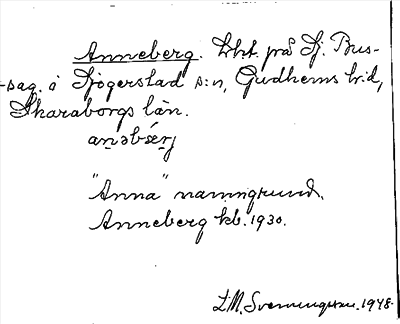 Anneberg. Lht. på Sj. Bus-
-sag. å Sjögerstad s:n, Gudhems h:d,
Skaraborgs län.
anəbærj
"Anna" namngrund.
Anneberg kb. 1930.
L.M. Svenungsson. 1948.